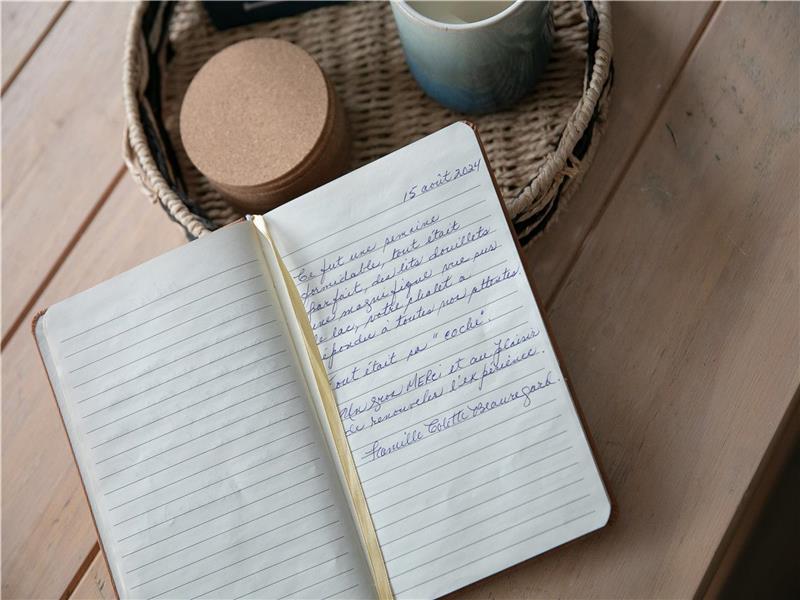 15 août 2024
Ce fut une semaine
formidable, tout était
parfait, des lits douillets
une magnifique vue sur
le lac, votre chalet a
répondu à toutes nos attentes.
Tout était sa "coche".
Un gros MERCi et au plaisir
de renouveler l'expérience.
Famille Colette Beauregard.